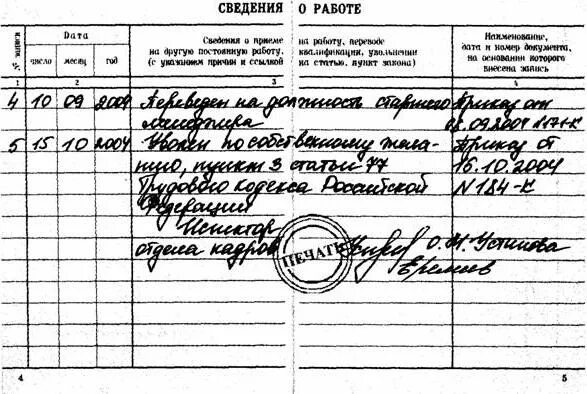 СВЕДЕНИЯ О РАБОТЕ
№ записи
Дата
Сведения о приеме на работу, переводе
на другую постоянную работу, квалификации, увольнении
(с указанием причин и ссылкой на статью, пункт закона)
Наименование,
дата и номер документа,
на основании которого
внесена запись
число месяц год
1 2 3 4
4 10 09 2004 Переведен на должность старшего Приказ от
менеджера 08.09.2004 171-К
5 15 10 2004 Уволен по собственному жела- Приказ от
нию, пункт 3 статьи 77 15.10.2004
Трудового кодекса Российской N 184-К
Федерации
Инспектор
отдела кадров ПЕЧАТЬ О.И. Устинова
Еремеев
4 5